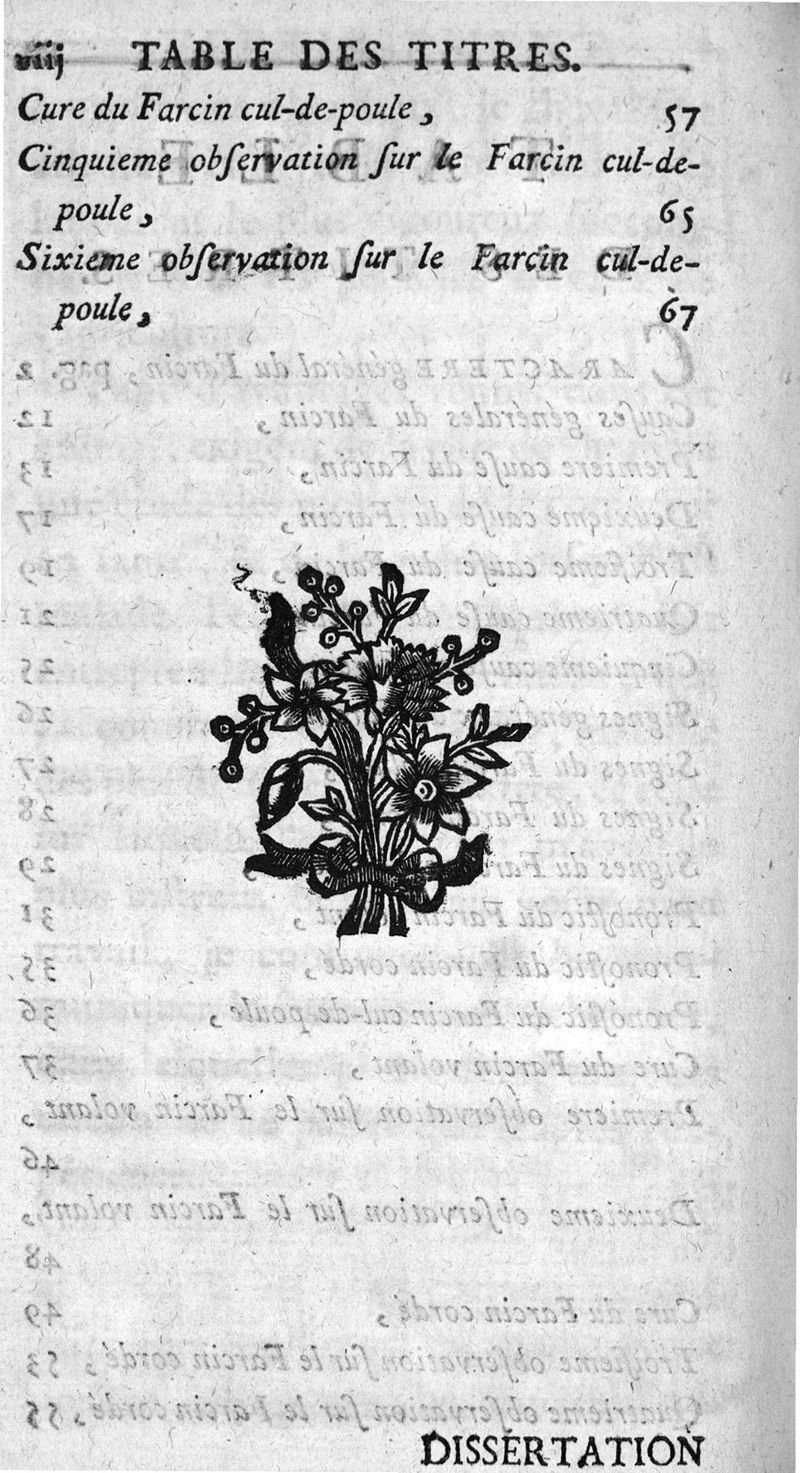 viij TABLE DES TITRES.
Cure du Farcin cul-de-poule, 57
Cinquieme obſervation ſur le Farcin cul-de-
poule, 65
Sixieme obſervation ſur le Farcin cul-de-
poule, 67
DISSERTATION